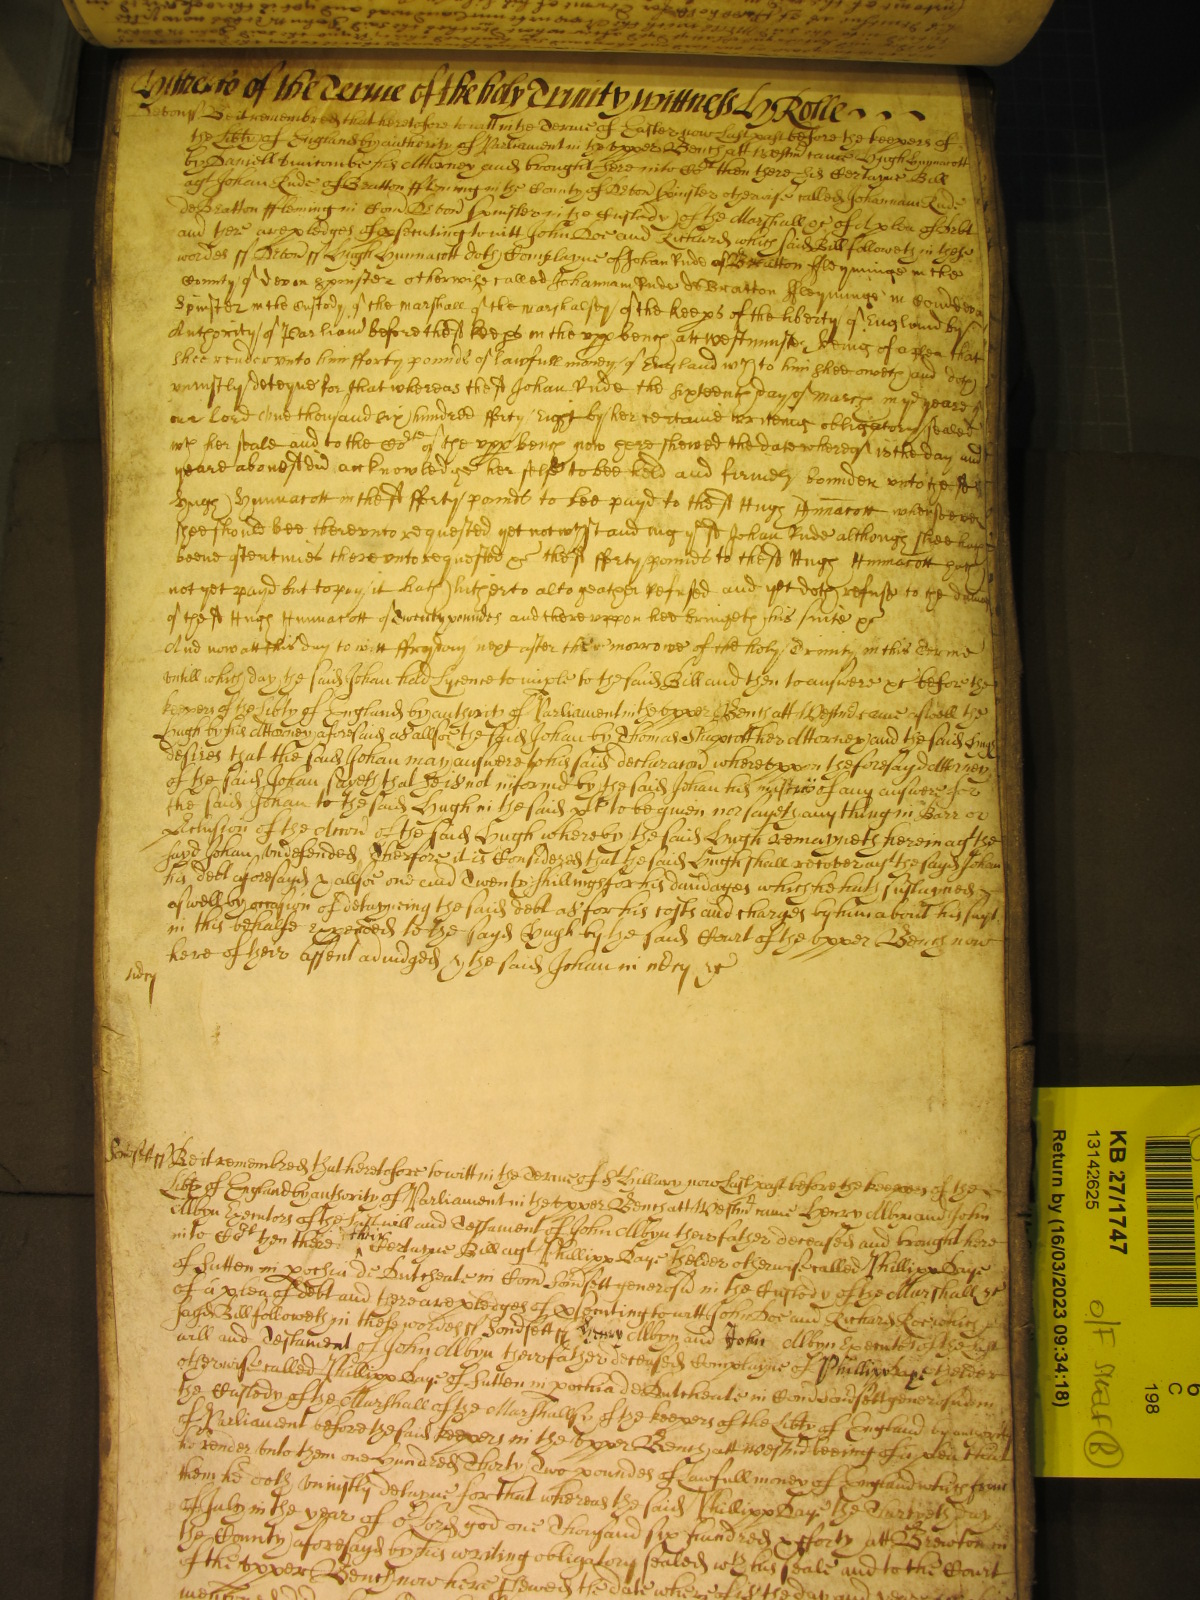 Hitherto of the Terme of the holy Trinity wittness H Rolle
Devon ss Be it remembred that heretofore to witt in the Terme of Easter now last past before the keepers of
the Libty of England by authority of Parliament in the upper Bench att Westmr came Hugh Hunnacott
by Daniell his Attorney and brought here into Cort then there his Certayne Bill
agt Johan Rude of Bratton fleming in the County of Devon Spinster otherwise called Johannam Rude
de Bratton ffleming in Com Devon Spinster in the Custody of the Marshall &c of A plea of debt
and there are pledges of psecuting to witt John Doe and Richard which said Bill followeth in these
wordes ss Devon ss Hugh Hunnacott doth Complayne of Johan Rude of Bratton fflemminge in the
County of Devon Spinster otherwise called Johannam Rude de Bratton fflemminge in Com Devon
Spinster in the Custody of the marshall of the marshalsey of the keeps of the liberty of England by
Authority of Parliamt before the sd keeps in the upp bench att westminster being of a plea that
shee render unto him fforty pounds of lawfull money of England wch to him shee oweth and doth
uniustly deteyne for that whereas the sd Johan Rude the sixteenth day of march in ye yeare of
our Lord One thousand six hundred fforty Eight by her certaine writeing obligatory sealed
wth her seale and to the Cort of the upp bench now here shewed the date whereof is the day and
yeare abovesd did acknowledge her selfe to bee held and firmely bounden unto the sd
Hugh Hunnacott in the sd fforty pounds to bee payd to the sd Hugh Hunnacott whensoever
shee should bee thereunto requested yet notwthstanding ye sd Johan Rude although shee hath
beene oftentimes thereunto requested &c the sd fforty pounds to the sd Hugh Hunnacott hath
not yet payd but to pay it hath hitherto altogeather refused and yet doth refuse to the damage
of the sd Hugh Hunnacott of Twenty pounds and thereuppon hee bringeth his suite &c
And now att this day to witt ffryday next after the morrowe of the holy Trinity in this Terme
untill which day the said Johan had Lycence to imple to the said Bill and then to answere &c before the
keepers of the Libty of England by authority of Parliament in the upper Bench att Westmr came aswell the
Hugh by his Attorney aforesaid as allsoe the said Johan by Thomas Shapcott her Attorney and the said Hugh
desires that the said Johan may answere to his said declaracon whereuppon the foresayd Attorney
of the said Johan sayeth that he is not informed by the said Johan his of any answere for
the said Johan to the said Hugh in the said plt to be given nor sayeth any thing in Barr or
seclusion of the Accon of the said Hugh whereby the said Hugh remayneth herein agt the
sayd Johan undefended Therefore it is Considered that the said Hugh shall recover agt the sayd Johan
his debt aforesayd & allsoe one and Twenty shillings for his damages which he hath susteyned
aswell by occasion of deteyneing the said debt as for his costs and charges by him about his suyt
in this behalfe expended to the sayd Hugh by the said Court of the upper Bench now
here of their assent adiudged & the said Johan in mcy &c
mcy
Somsett ss Be it remembred that heretofore to witt in the Terme of St Hillary now last past before the keepers of the
Libty of England by authority of Parliament in the upper Bench att Westmr came Henry Albyn and John
Albyn Executors of the last will and Testament of John Albyn their father deceased and brought here
into Cort then there their Certayne Bill agt Phillipp Daye the elder otherwise called Phillipp Daye
of Sutten in pochia de Dutcheate in Com Somsett generosu in the Custody of the Marshall &c
of a plea of debt and there are pledges of psecuting to witt John Doe and Richard Roe which
sayd Bill followeth in these wordes ss Somsett ss Henry Albyn and John Albyn Executors of the last
will and Testament of John Albyn their father deceased Complayne of Phillipp Daye the elder
otherwise called Phillipp Daye of Sutten in pochia de Dutcheate in Com Somsett generosu in
the Custody of the Marshall of the Marshallsy of the keepers of the Libty of England by authority
of Parliament before the said keepers in the upper Bench att westmr beeing of a plea that
he render unto them one hundred Thirty Two poundes of Lawfull money of England which from
them he doth uniustly deteyne for that whereas the said Phillipp Daye the day
of July in the year of or Lord god one Thousand six hundred & fforty att Brewton in
the County aforesayd by his writing obligatory sealed wth his seale and to the Court
of the upper Bench now here shewed the date whereof is the day and yeare
KB 27/1747
13142625
Return by (16/03/2023 09:34:18)
198
C
6